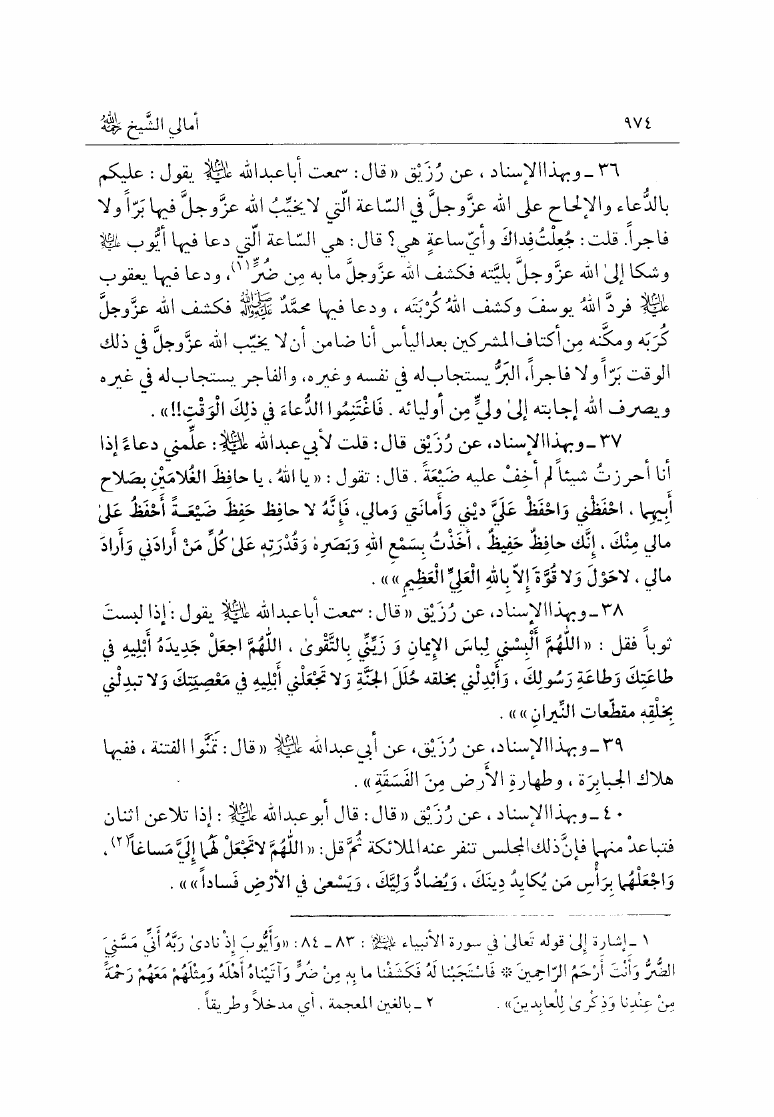 ٩٧٤ أمالي الشَّيخ ﵀
٣٦ ـ وبهذا الإسناد ، عن رُزَيْق « قال : سمعت أبا عبدالله ﵇ يقول : عليكم
بالدُّعاء والإلحاح على الله عزَّوجلَّ في السّاعة الّتي لا يخيِّبُ الله عزَّوجلَّ فيها بَرّاً ولا
فاجراً. قلت : جُعِلْتُ فِداكَ وأيّ ساعةٍ هي؟ قال : هي السّاعة الّتي دعا فيها أيُّوب ﵇
وشكا إلىٰ الله عزَّوجلَّ بليَّته فكشف الله عزَّوجلَّ ما به مِن ضُرٍّ(١)، ودعا فيها يعقوب
﵇ فردَّ اللهُ يوسفَ وكشف اللهُ كُرْبَتَه ، ودعا فيها محمَّدٌ ﷺ فكشف الله عزَّوجلَّ
كُرَبَه ومكَّنه مِن أكتاف المشركين بعد اليأس أنا ضامن أن لا يخيّب الله عزَّوجلَّ في ذلك
الوقت بَرّاً ولا فاجراً، البَرُّ يستجاب له في نفسه وغيره، والفاجر يستجاب له في غيره
ويصرف الله إجابته إلىٰ وليٍّ مِن أوليائه . فَاغْتَنِمُوا الدُّعاءَ في ذلِكَ الْوَقْتِ!!» .
٣٧ ـ وبهذا الإسناد، عن رُزَيْق قال : قلت لأبي عبدالله ﵇ : علِّمني دعاءً إذا
أنا أحرزتُ شيئاً لم أخِفْ عليه ضَيْعَةً . قال : تقول : «يا اللهُ ، يا حافِظَ الغُلامَيْنِ بِصَلاح
أَبِيهِما ، احْفَظْني وَاحْفَظْ عَلَيَّ دِيْني وَأمانَتي وَمالي، فَإنَّهُ لا حافِظ حَفِظَ ضَيْعَــةً أحْفَظُ عَلىٰ
مالي مِنْكَ ، إنَّك حافِظٌ حَفِيظٌ ، أخَذْتُ بِسَمْعِ اللهِ وَبَصَرِهِ وَقُدْرَتِهِ عَلىٰ كُلِّ مَنْ أرادَني وَأرادَ
مالي ، لاحَوْلَ وَلا قُوَّةَ إلاّ بِاللهِ الْعَلِيِّ الْعَظِيمِ»» .
٣٨ ـ وبهذا الإسناد، عن رُزَيْق « قال : سمعت أبا عبدالله ﵇ يقول : إذا لبستَ
ثوباً فقل : «اللّهُمَّ ألْبِسْني لِباسَ الإيمانِ وَ زَيِّنِّي بِالتَّقْوىٰ ، اللّهُمَّ اجعَلْ جَدِيدَهُ أُبْلِيهِ في
طاعَتِكَ وَطاعَةِ رَسُولِكَ ، وَأبْدِلْني بخلقه حُلَلَ الجَنَّةِ وَلا تَجْعَلْني أُبْلِيهِ في مَعْصِيَتِكَ وَلا تبدِلْني
بِخَلْقِهِ مقطّعات النِّيرانِ»» .
٣٩ ـ وبهذا الإسناد، عن رُزَيْق، عن أبي عبدالله ﵇ « قال : تَمَنَّوا الفتنة ، ففيها
هلاك الجبابِرَة ، وطهارةِ الأرض مِنَ الفَسَقَةِ» .
٤٠ ـ وبهذا الإسناد ، عن رُزَيْق « قال : قال أبو عبدالله ﵇ : إذا تلاعن اثنان
فتباعدْ منهما فإنَّ ذلك المجلس تنفر عنه الملائكة ثُمَّ قل : «اللّهُمَّ لا تَجْعَلْ لَهُما إلَيَّ مَساغاً(٢) ،
وَاجْعَلْهُما بِرَأْسِ مَن يُكايِدُ دِينَكَ ، وَيُضادُّ وَلِيَّكَ ، وَيَسْعىٰ في الأرْضِ فَساداً»» .
١ ـ إشارة إلىٰ قوله تَعالىٰ في سورة الأنبياء ﵇ : ٨٣ ـ ٨٤ : «وَأَيُّوبَ إذْ نادىٰ رَبَّهُ أَنّي مَسَّنِيَ
الضُّرُّ وَأَنْتَ أَرْحَمُ الرّاحِمِينَ * فَاسْتَجَبْنا لَهُ فَكَشَفْنا ما بِهِ مِنْ ضُرٍّ وَآتَيْناهُ أَهْلَهُ وَمِثْلَهُمْ مَعَهُمْ رَحْمَةً
مِنْ عِنْدِنا وَذِكْرىٰ لِلْعابِدينَ» . ٢ ـ بالغين المعجمة ، أي مدخلاً وطريقاً .